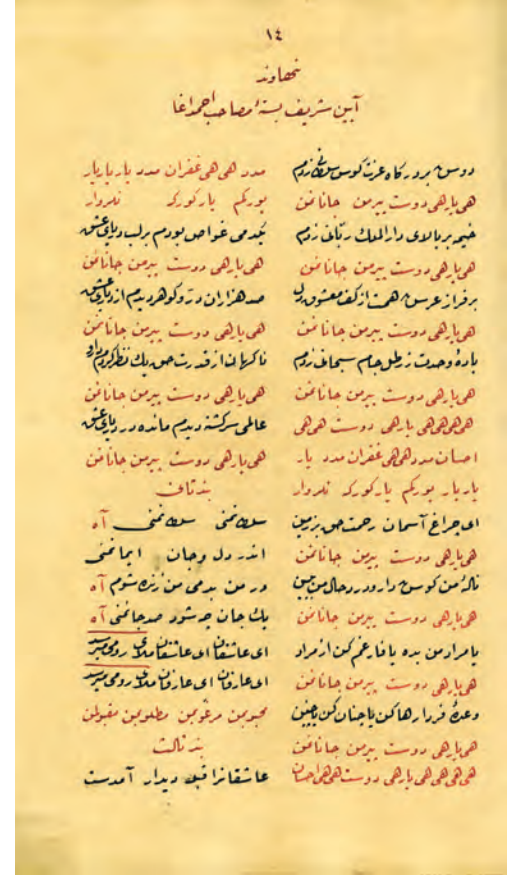 ١٤
نهاوند
آیین شریف بستهٔ مصاحب احمد اغا
دوش بر درکاه عزت کوس سلطانی زدم
هی یارهی دوست پیرمن جانانمن
خیمه بر بالای دارالملک ربانی زدم
هی یارهی دوست پیرمن جانانمن
بر فراز عرش همت از کف معشوق دل
هی یارهی دوست پیرمن جانانمن
بادهٔ وحدت ز رطل جام سبحانی زدم
هی یارهی دوست پیرمن جانانمن
هی هی هی هی یارهی دوست هی هی
احسان مدد هی هی غفران مدد یار
یار یار یورکم یارکورکه نلروار
ای چراغ آسمان رحمت حق بر زمین
هی یارهی دوست پیرمن جانانمن
نالهٔ من کوش دارو درد حال من ببین
هی یارهی دوست پیرمن جانانمن
یا مراد من بده یا فارغم کن از مراد
هی یارهی دوست پیرمن جانانمن
وعدهٔ فردا رها کن یا چنان کن یا چنین
هی یارهی دوست پیرمن جانانمن
هی هی هی هی یارهی دوست هی هی احسان
مدد هی هی غفران مدد یار یار یار
یورکم یارکورکه نلروار
یکدمی غواص بودم بر لب دریای عشق
هی یارهی دوست پیرمن جانانمن
صد هزاران در و کوهر دیدم از دریای عشق
هی یارهی دوست پیرمن جانانمن
ناکهان از قدرت حق یک نظر کردم
هی یارهی دوست پیرمن جانانمن
عالمی سرکشته دیدم مانده در دریای عشق
هی یارهی دوست پیرمن جانانمن
بند ثانی
سلطان منی سلطان منی آه
اندر دل و جان ایمان منی
در من بدمی من زنده شوم آه
یک جان چه شود صد جان منی آه
ای عاشقان ای عاشقان ملای رومی میرسد
ای عارفان ای عارفان ملای رومی میرسد
محبوبمن مرغوبمن مطلوبمن
بند ثالث
عاشقانرا قبله دیدار آمدست